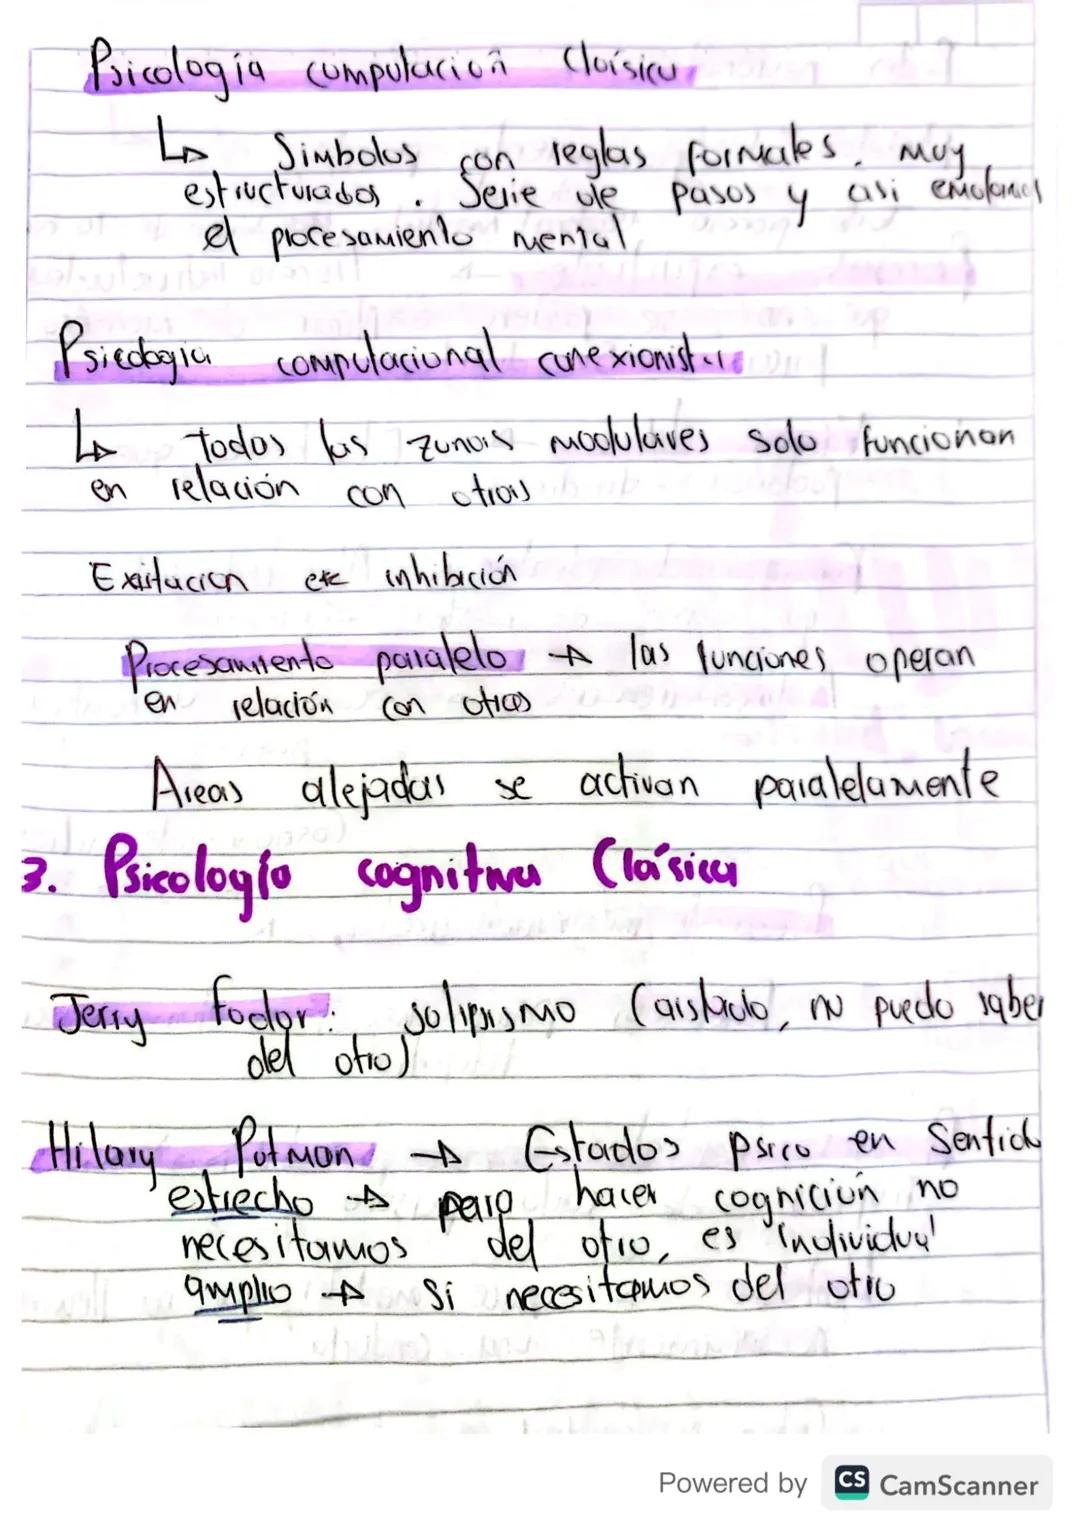 Psicología computación Clásica
↳ Simbolos con reglas formales. Muy
estructurados. Serie de pasos y asi emulamos
el procesamiento mental
Psicologia computacional conexionista
↳ todas las zonas modulares solo funcionan
en relación con otras
Exitacion etc inhibición
Procesamiento paralelo → las funciones operan
en relación con otras
Areas alejadas se activan paralelamente
3. Psicología cognitiva Clásica
Jerry Fodor: solipsismo (aislado, no puedo saber
del otro)
Hilary Putman → Estados psico en Sentido
estrecho → para hacer cognición no
necesitamos del otro, es individual
amplio → Si necesitamos del otro
Powered by CS CamScanner